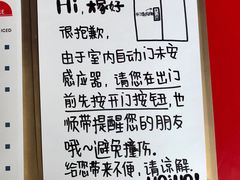 Hi,椽好
很抱歉,
由于室内自动门未安
感应器,请您在出门
前先按开门按钮,也
顺带提醒您的朋友
哦~避免撞伤。
给您带来不便,请谅解。
ICED